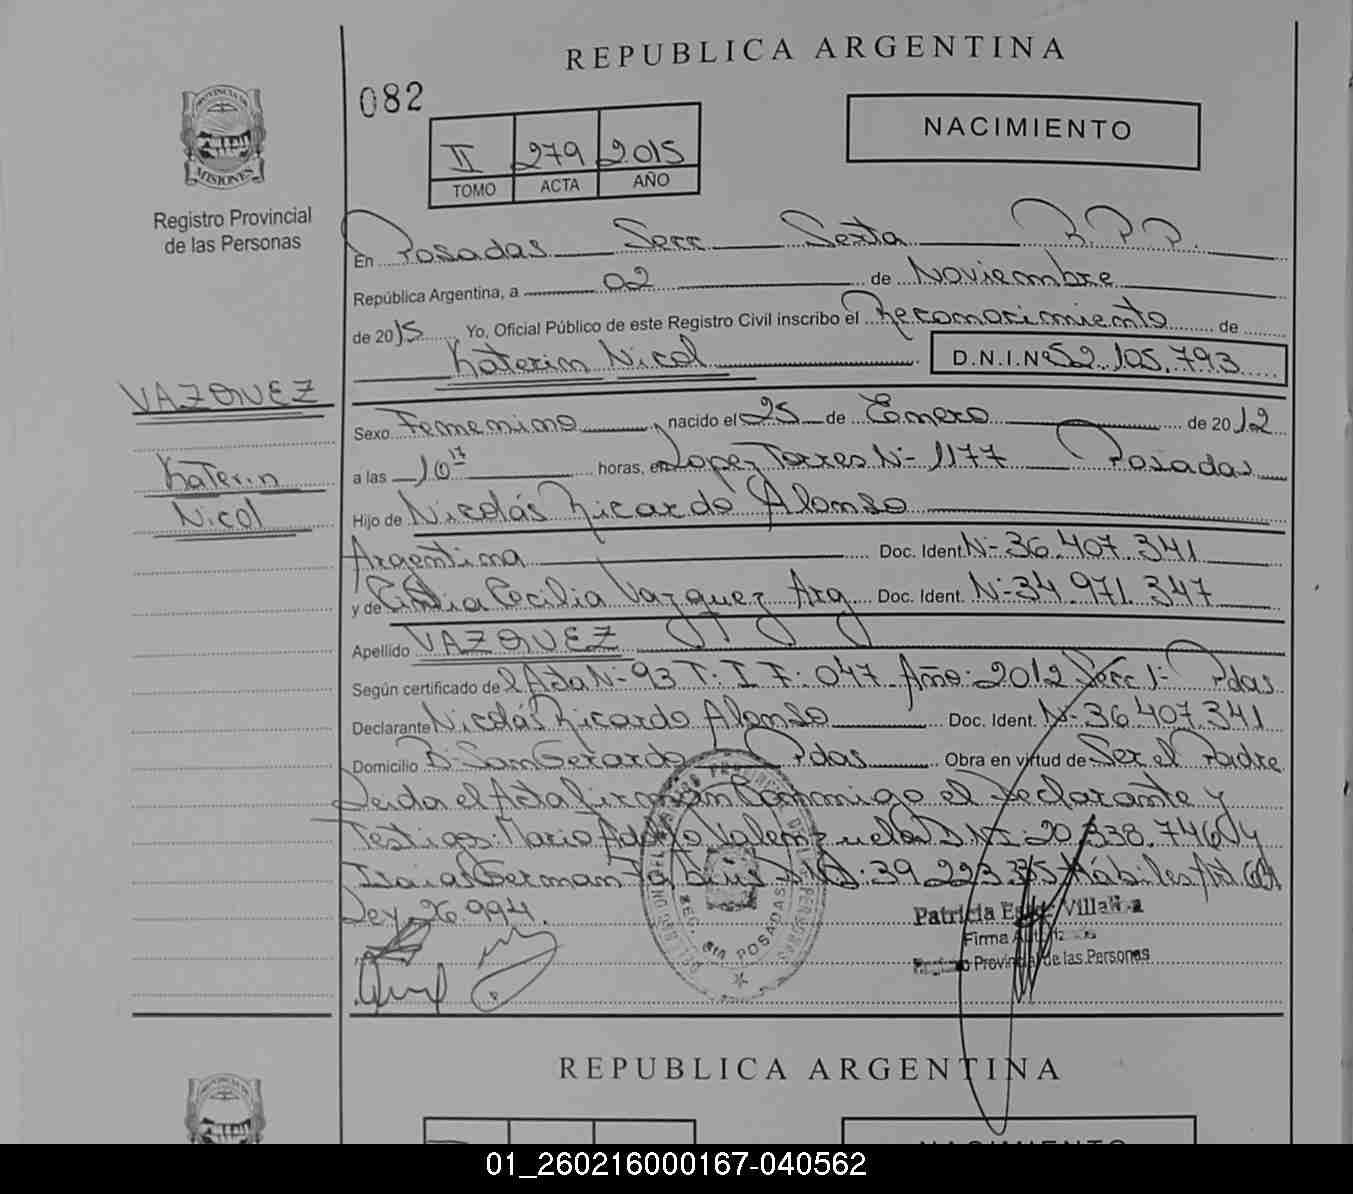 REPUBLICA ARGENTINA
082
NACIMIENTO
II 279 2015
TOMO ACTA AÑO
PROVINCIA DE
MISIONES
Registro Provincial
de las Personas
En Posadas Secc. Sexta R.P.P.
República Argentina, a 02 de Noviembre
de 2015 Yo, Oficial Público de este Registro Civil inscribo el Reconocimiento de
Katerin Nicol D.N.I.Nº 52.105.793
VAZQUEZ
Katerin
Nicol
Sexo Femenino, nacido el 25 de Enero de 2012
a las 10 17 horas, en Lopez Torres Nº 1177 Posadas
Hijo de Nicolás Ricardo Alonso
Argentina Doc. Ident. Nº 36.407.341
y de Cintia Cecilia Vazquez Arg Doc. Ident. Nº 34.971.347
Apellido VAZQUEZ
Según certificado de Acta Nº 93 T: I F: 047 Año: 2012 Secc 1º Pdas
Declarante Nicolás Ricardo Alonso Doc. Ident. Nº 36.407.341
Domicilio Bº San Gerardo Pdas Obra en virtud de Ser el Padre
Leida el Acta firman Conmigo el Declarante y
Testigos: Mario Adolfo Valenzuela D.N.I: 20.338.746 y
Isaias German D.N.I: 39.223.335 Hábiles Art.
Ley 26.994.
SEC. 6ta POSADAS
Patricia Villalba
Firma
Registro Provincial de las Personas
REPUBLICA ARGENTINA
NACIMIENTO
01_260216000167-040562